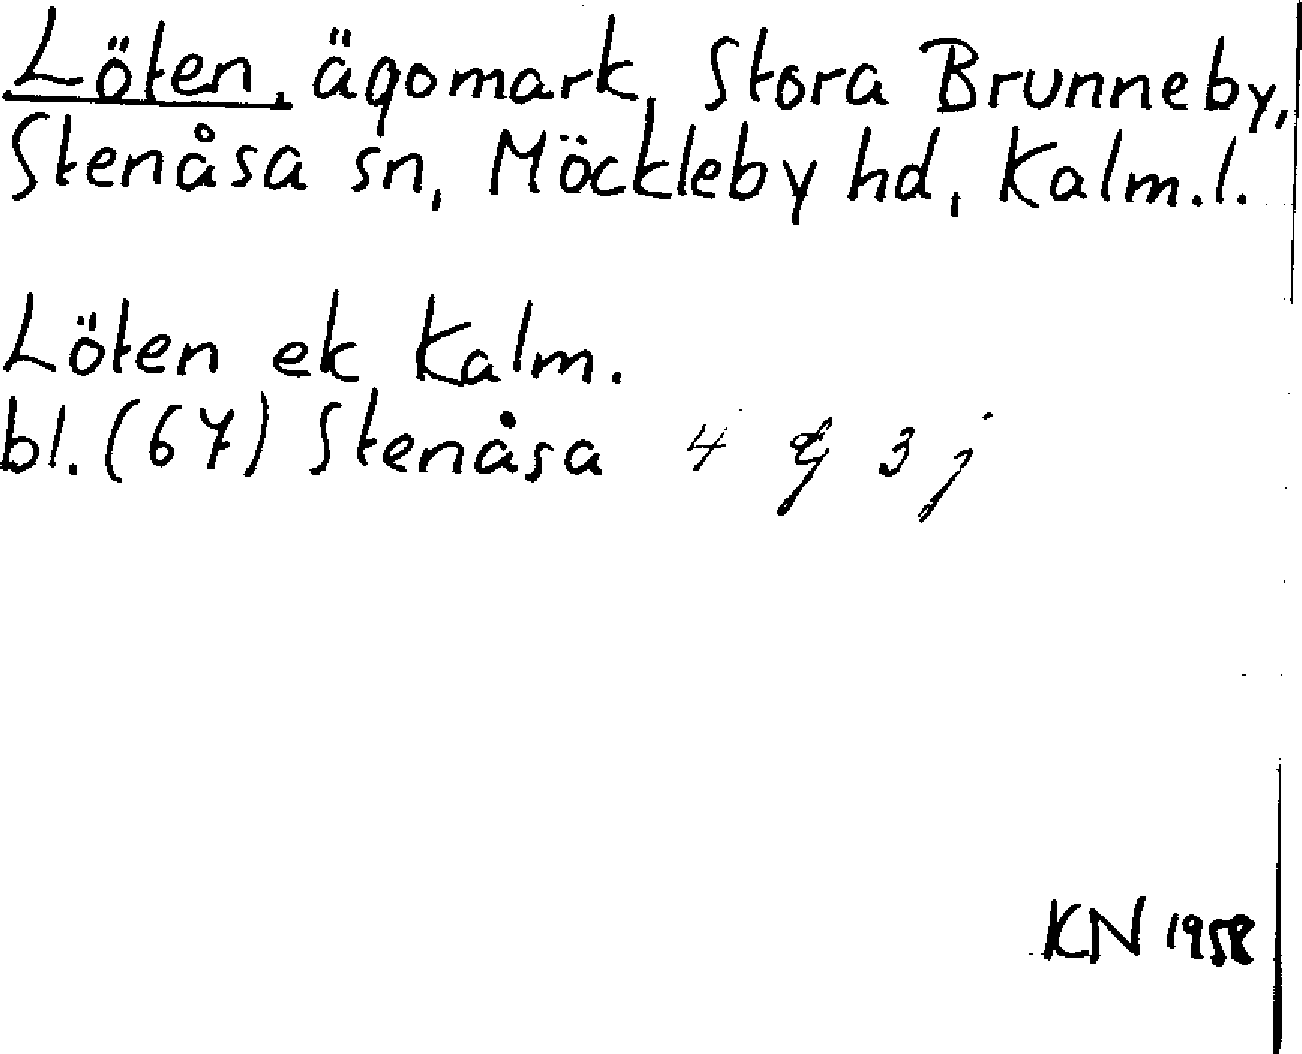 Löten, ägomark, Stora Brunneby,
Stenåsa sn, Möckleby hd, Kalm.l.
Löten ek Kalm.
bl. (67) Stenåsa 4 g 3 j
KN 1958